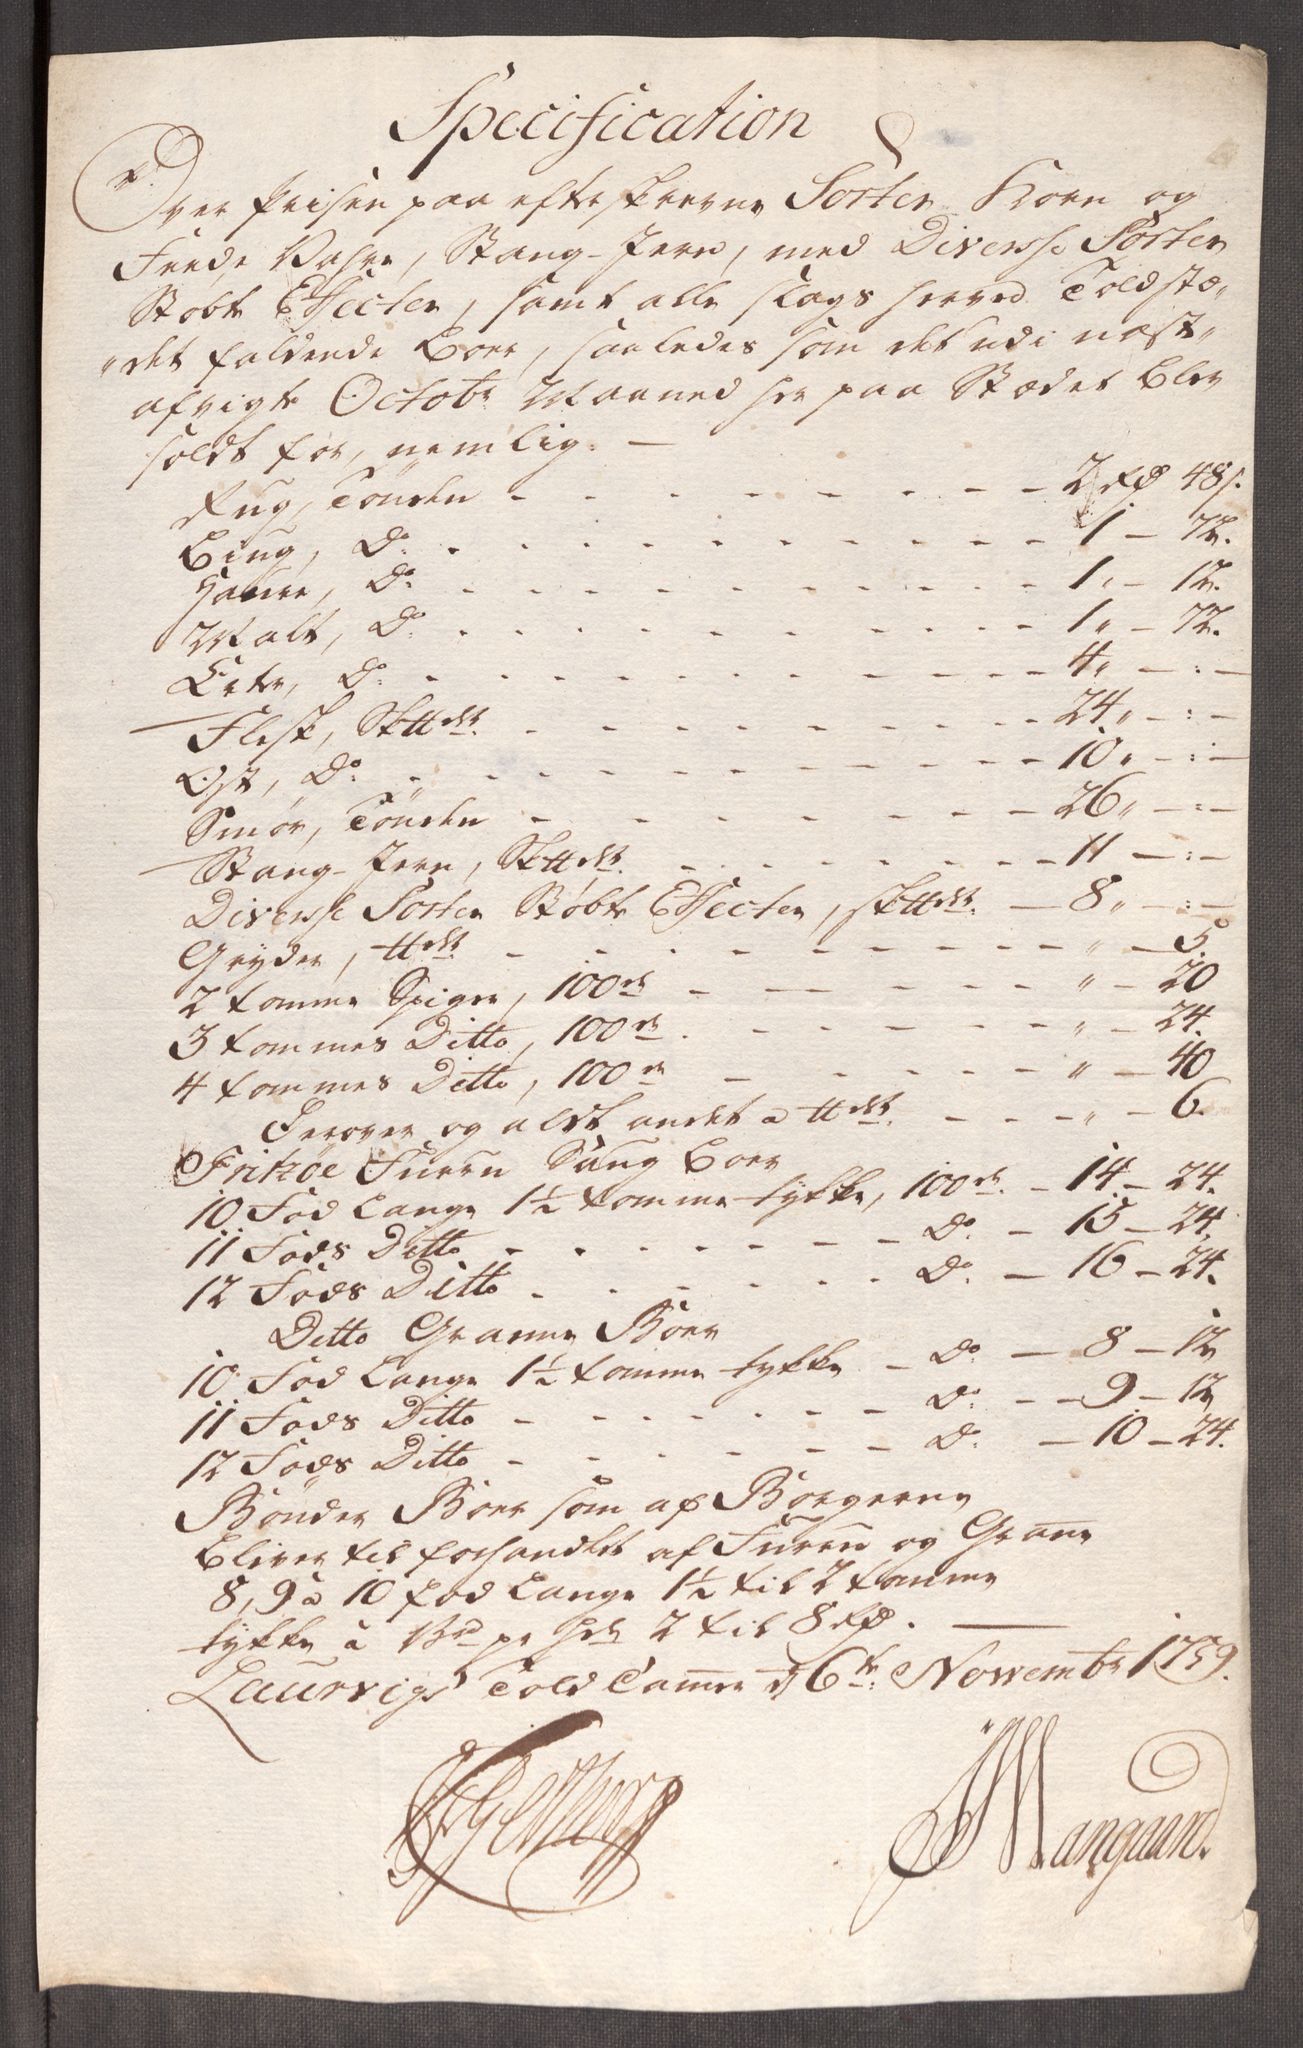 Specification
Over Prisen paa efterskrevne Sorter Korn og
Feede Vahre, Stang-Jern, med Diverse Sorter
Støbte Effecter, samt alle slags herved Toldstæ„
„det faldende Bord, saaledes som det udi næst„
afvigte Octobr Maaned her paa Stædet blev
soldt for, nemlig. —
Rug, Tönden - - - - 2 Rd 48 s.
Biug, Do. - - - - 1 — 72.
Haure, Do. - - - - 1 „ — 12.
Malt, Do. - - - - 1 „ — 72.
Erter, Do. - - - - 4 „ — : —
Flesk, Sk℔det. - - - - 24 „ — : —
Ost, Do. - - - - 10 „ — : —
Smör, Tönden - - - - 26 „ — : —
Stang-Jern, Sk℔det. - - - - 11 — : —
Diverse Sorter Støbte Effecter, Sk℔det. — 8 „ — : —
Gryder, ℔det. - - - - „ — 5.
2 tomme Spiger, 100de - - - - „ — 20
3 tommes Ditto, 100de. - - - - „ — 24.
4 tommes Ditto, 100de - - - - „ — 40
og aldt andet a ℔det. - - - „ — 6.
Frikøe Furru Saug Bord
10 Fod Lange 1½ tomme tykke, 100de. — 14 — 24.
11 Fods Ditto - - - - Do. — 15 — 24.
12 Fods Ditto - - - - Do. — 16 — 24.
Ditto Granne Bord
10 Fod Lange 1½ tomme tykke — Do. — 8 — 12
11 Fods Ditto - - - - Do. - — 9 — 12
12 Fods Ditto - - - - Do. — 10 — 24.
Bönder Bord som af Borgerne
bliver til forhandlet af Furru og Grann
8, 9 à 10 fod Lange 1½ til 2 tomme
tykke à pr 2 til 8 Rd. —
Laurvigs Told Camer d 6te. Novembr 1759.
JMangaard.